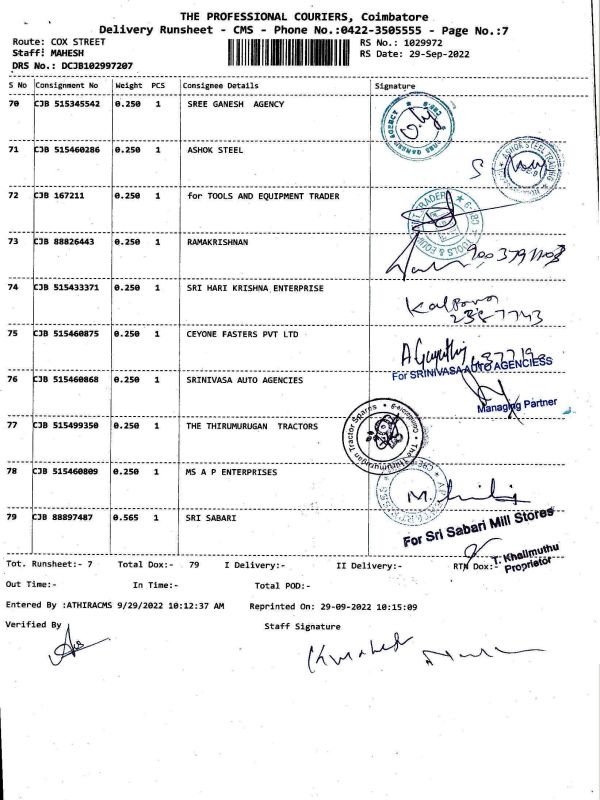 THE PROFESSIONAL COURIERS, Coimbatore
Delivery Runsheet - CMS - Phone No.:0422-3505555 - Page No.:7
Route: COX STREET
RS No.: 1029972
Staff: MAHESH
RS Date: 29-Sep-2022
DRS No.: DCJB102997207
S No Consignment No Weight PCS Consignee Details Signature
70 CJB 515345542 0.250 1 SREE GANESH AGENCY
71 CJB 515460286 0.250 1 ASHOK STEEL
72 CJB 167211 0.250 1 for TOOLS AND EQUIPMENT TRADER
73 CJB 88826443 0.250 1 RAMAKRISHNAN
74 CJB 515433371 0.250 1 SRI HARI KRISHNA ENTERPRISE
Kalpana
2387743
75 CJB 515460875 0.250 1 CEYONE FASTERS PVT LTD
76 CJB 515460868 0.250 1 SRINIVASA AUTO AGENCIES
For SRINIVASA AUTO AGENCIESS
Managing Partner
77 CJB 515499350 0.250 1 THE THIRUMURUGAN TRACTORS
78 CJB 515460809 0.250 1 MS A P ENTERPRISES
79 CJB 88897487 0.565 1 SRI SABARI
For Sri Sabari Mill Stores
T. Khalimuthu
Proprietor
Tot. Runsheet:- 7 Total Dox:- 79 I Delivery:- II Delivery:- RTN Dox:-
Out Time:- In Time:- Total POD:-
Entered By :ATHIRACMS 9/29/2022 10:12:37 AM Reprinted On: 29-09-2022 10:15:09
Verified By Staff Signature